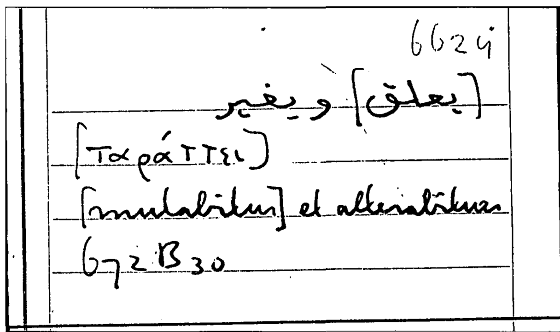 6624
[يعلق] ويغير
[ταράττει]
[mutabitur] et alterabitur
672 B 30